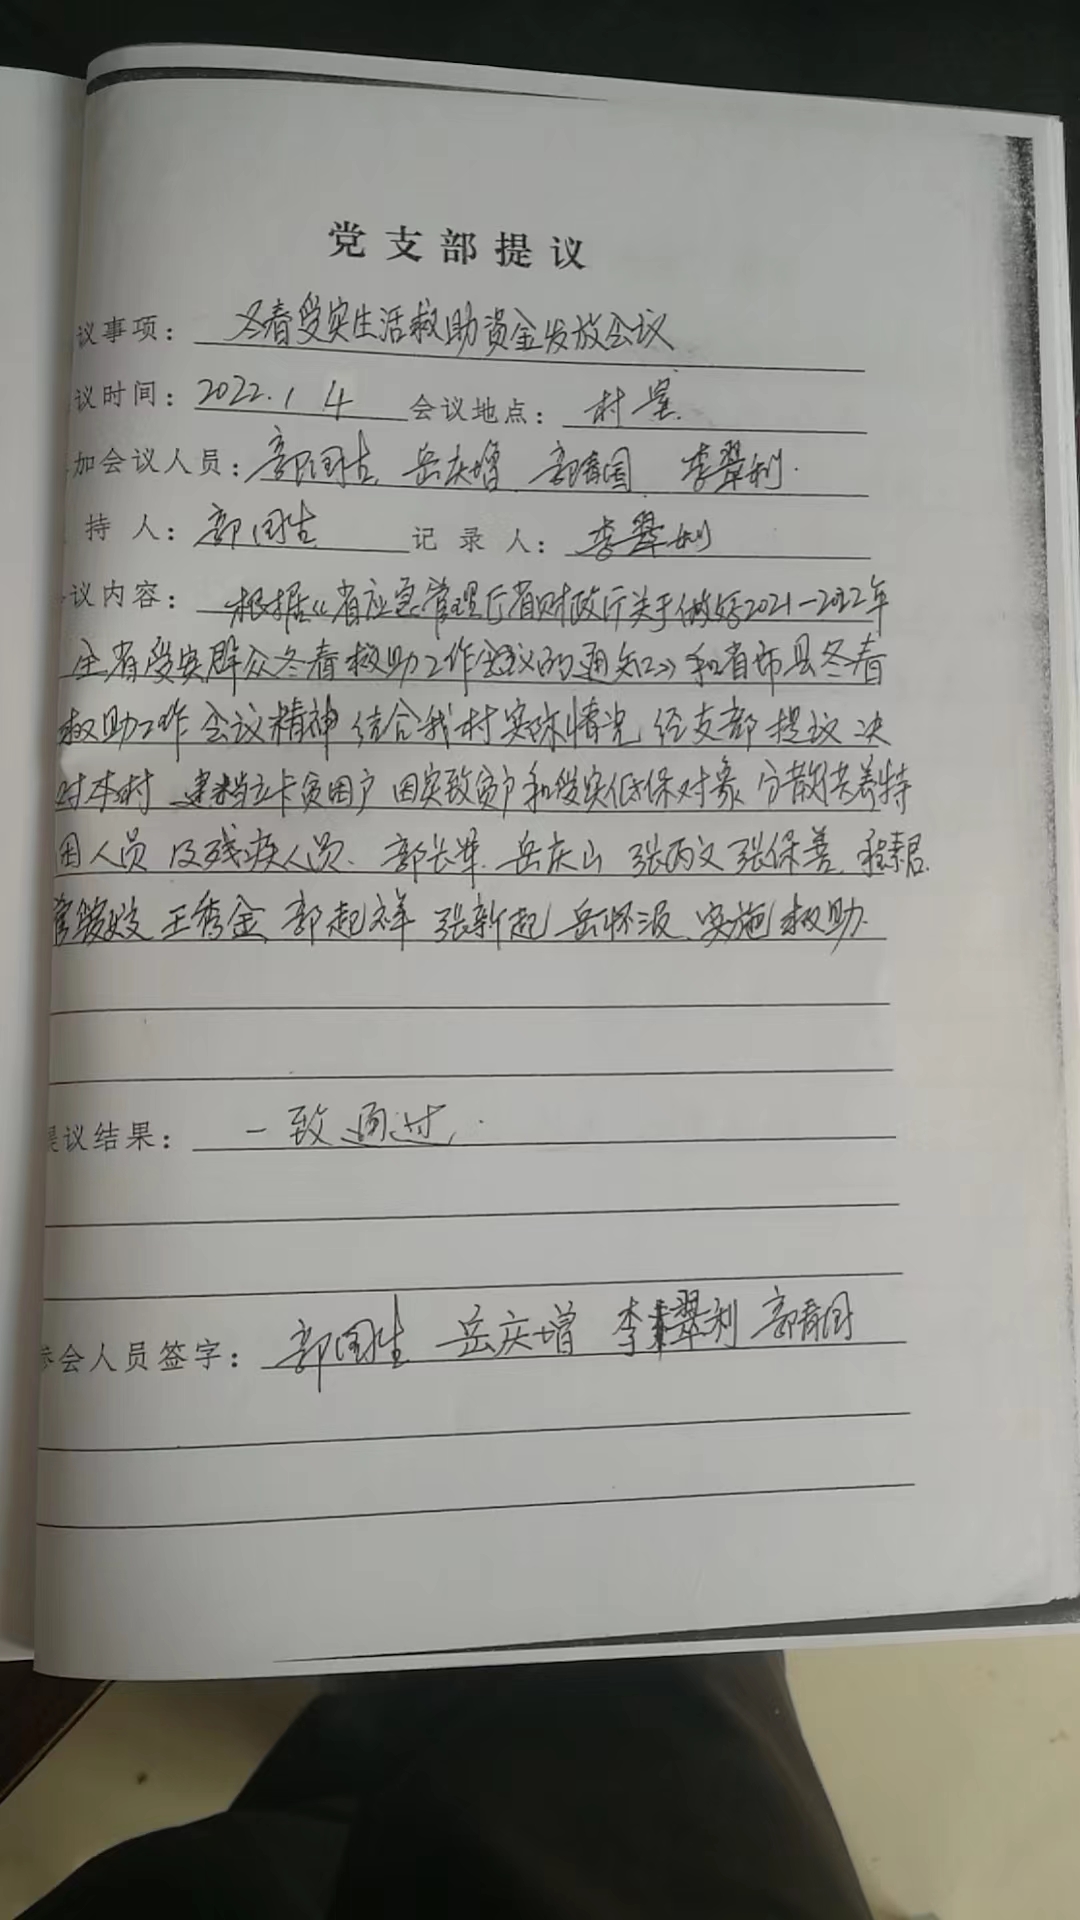 党支部提议
议事项: 冬春受灾生活救助资金发放会议
议时间: 2022.1 4 会议地点: 村室.
加会议人员: 郭国生 岳庆增 郭春国 李翠利.
持人: 郭国生 记录人: 李翠利
议内容: 根据《省应急管理厅省财政厅关于做好2021-2022年
全省受灾群众冬春救助工作会议的通知》和省市县冬春
救助工作会议精神 结合我村实际情况 经支部提议 决
对本村 建档立卡贫困户 因灾致贫户和受灾低保对象 分散供养特
困人员 及残疾人员、郭长军、岳庆山 张丙文 张保善、
王秀金、郭起祥 张新起 岳怀波、实施救助.
提议结果: 一致通过.
参会人员签字: 郭国生 岳庆增 李翠利 郭春国